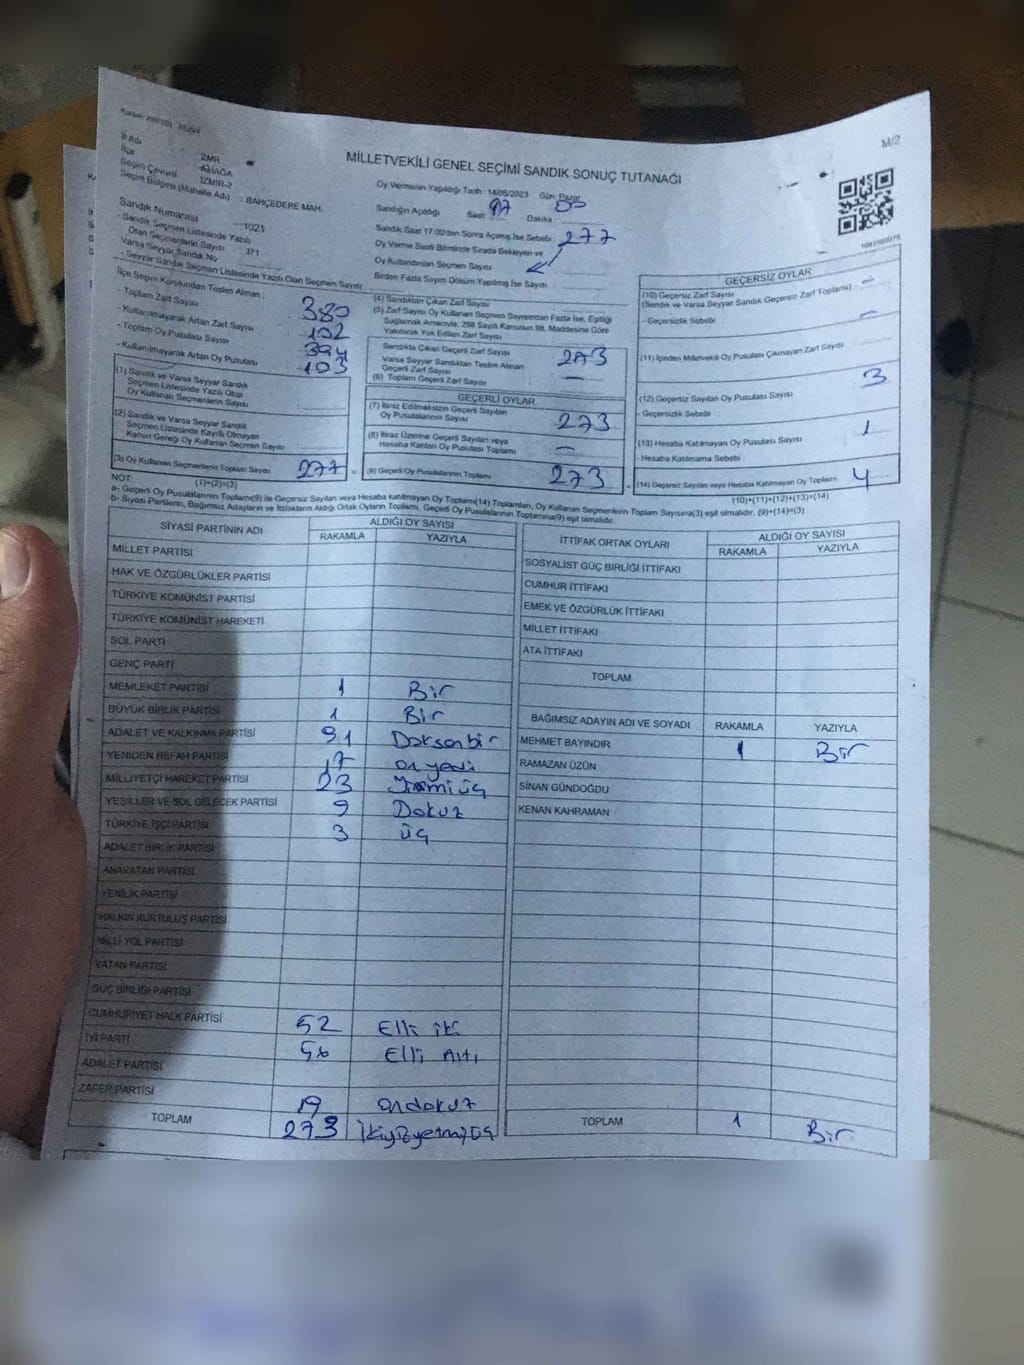 M/2
MİLLETVEKİLİ GENEL SEÇİMİ SANDIK SONUÇ TUTANAĞI
İl Adı
İlçe ALİAĞA
Seçim Çevresi İZMİR-2
Seçim Bölgesi (Mahalle Adı) : BAHÇEDERE MAH.
Sandık Numarası : 1021
- Sandık Seçmen Listesinde Yazılı
Olan Seçmenlerin Sayısı : 371
Varsa Seyyar Sandık No
- Seyyar Sandık Seçmen Listesinde Yazılı Olan Seçmen Sayısı
Oy Vermenin Yapıldığı Tarih : 14/05/2023 Gün: Pazar
Sandığın Açıldığı Saat: 17 Dakika : 00
Sandık Saat 17.00'den Sonra Açılmış İse Sebebi
277
Oy Verme Saati Bitiminde Sırada Bekleyen ve
Oy Kullandırılan Seçmen Sayısı
Birden Fazla Sayım Döküm Yapılmış İse Sayısı
İlçe Seçim Kurulundan Teslim Alınan :
- Toplam Zarf Sayısı 380
- Kullanılmayarak Artan Zarf Sayısı 102
- Toplam Oy Pusulası Sayısı
- Kullanılmayarak Artan Oy Pusulası 103
(1) Sandık ve Varsa Seyyar Sandık
Seçmen Listesinde Yazılı Olup
Oy Kullanan Seçmenlerin Sayısı
(2) Sandık ve Varsa Seyyar Sandık
Seçmen Listesinde Kayıtlı Olmayan
Kanun Gereği Oy Kullanan Seçmen Sayısı
(3) Oy Kullanan Seçmenlerin Toplam Sayısı 277
(1)+(2)=(3)
(4) Sandıktan Çıkan Zarf Sayısı
(5) Zarf Sayısı Oy Kullanan Seçmen Sayısından Fazla İse, Eşitliği
Sağlamak Amacıyla; 298 Sayılı Kanunun 98. Maddesine Göre
Yakılarak Yok Edilen Zarf Sayısı
Sandıkta Çıkan Geçerli Zarf Sayısı
Varsa Seyyar Sandıktan Teslim Alınan
Geçerli Zarf Sayısı
(6) Toplam Geçerli Zarf Sayısı
GEÇERLİ OYLAR
(7) İtiraz Edilmeksizin Geçerli Sayılan
Oy Pusulalarının Sayısı 273
(8) İtiraz Üzerine Geçerli Sayılan veya
Hesaba Katılan Oy Pusulası Toplamı —
(9) Geçerli Oy Pusulalarının Toplamı 273
GEÇERSİZ OYLAR
(10) Geçersiz Zarf Sayısı
(Sandık ve Varsa Seyyar Sandık Geçersiz Zarf Toplamı) : —
- Geçersizlik Sebebi : —
(11) İçinden Milletvekili Oy Pusulası Çıkmayan Zarf Sayısı
(12) Geçersiz Sayılan Oy Pusulası Sayısı 3
- Geçersizlik Sebebi :
(13) Hesaba Katılmayan Oy Pusulası Sayısı 1
- Hesaba Katılmama Sebebi :
(14) Geçersiz Sayılan veya Hesaba Katılmayan Oy Toplamı 4
(10)+(11)+(12)+(13)=(14)
NOT:
a- Geçerli Oy Pusulalarının Toplamı(9) ile Geçersiz Sayılan veya Hesaba katılmayan Oy Toplamı(14) Toplamları, Oy Kullanan Seçmenlerin Toplam Sayısına(3) eşit olmalıdır. (9)+(14)=(3)
b- Siyasi Partilerin, Bağımsız Adayların ve İttifakların Aldığı Ortak Oyların Toplamı, Geçerli Oy Pusulalarının Toplamına(9) eşit olmalıdır.
SİYASİ PARTİNİN ADI ALDIĞI OY SAYISI
RAKAMLA YAZIYLA
MİLLET PARTİSİ
HAK VE ÖZGÜRLÜKLER PARTİSİ
TÜRKİYE KOMÜNİST PARTİSİ
TÜRKİYE KOMÜNİST HAREKETİ
SOL PARTİ
GENÇ PARTİ
MEMLEKET PARTİSİ 1 Bir
BÜYÜK BİRLİK PARTİSİ 1 Bir
ADALET VE KALKINMA PARTİSİ 91 Doksan bir
YENİDEN REFAH PARTİSİ 17 on yedi
MİLLİYETÇİ HAREKET PARTİSİ 23 Yirmi üç
YEŞİLLER VE SOL GELECEK PARTİSİ 9 Dokuz
TÜRKİYE İŞÇİ PARTİSİ 3 üç
ADALET BİRLİK PARTİSİ
ANAVATAN PARTİSİ
YENİLİK PARTİSİ
HALKIN KURTULUŞ PARTİSİ
MİLLİ YOL PARTİSİ
VATAN PARTİSİ
GÜÇ BİRLİĞİ PARTİSİ
CUMHURİYET HALK PARTİSİ 52 Elli iki
İYİ PARTİ 56 Elli Altı
ADALET PARTİSİ
ZAFER PARTİSİ 19 ondokuz
TOPLAM 273
İTTİFAK ORTAK OYLARI ALDIĞI OY SAYISI
RAKAMLA YAZIYLA
SOSYALİST GÜÇ BİRLİĞİ İTTİFAKI
CUMHUR İTTİFAKI
EMEK VE ÖZGÜRLÜK İTTİFAKI
MİLLET İTTİFAKI
ATA İTTİFAKI
TOPLAM
BAĞIMSIZ ADAYIN ADI VE SOYADI RAKAMLA YAZIYLA
MEHMET BAYINDIR 1 Bir
RAMAZAN ÜZÜN
SİNAN GÜNDOĞDU
KENAN KAHRAMAN
TOPLAM 1 Bir